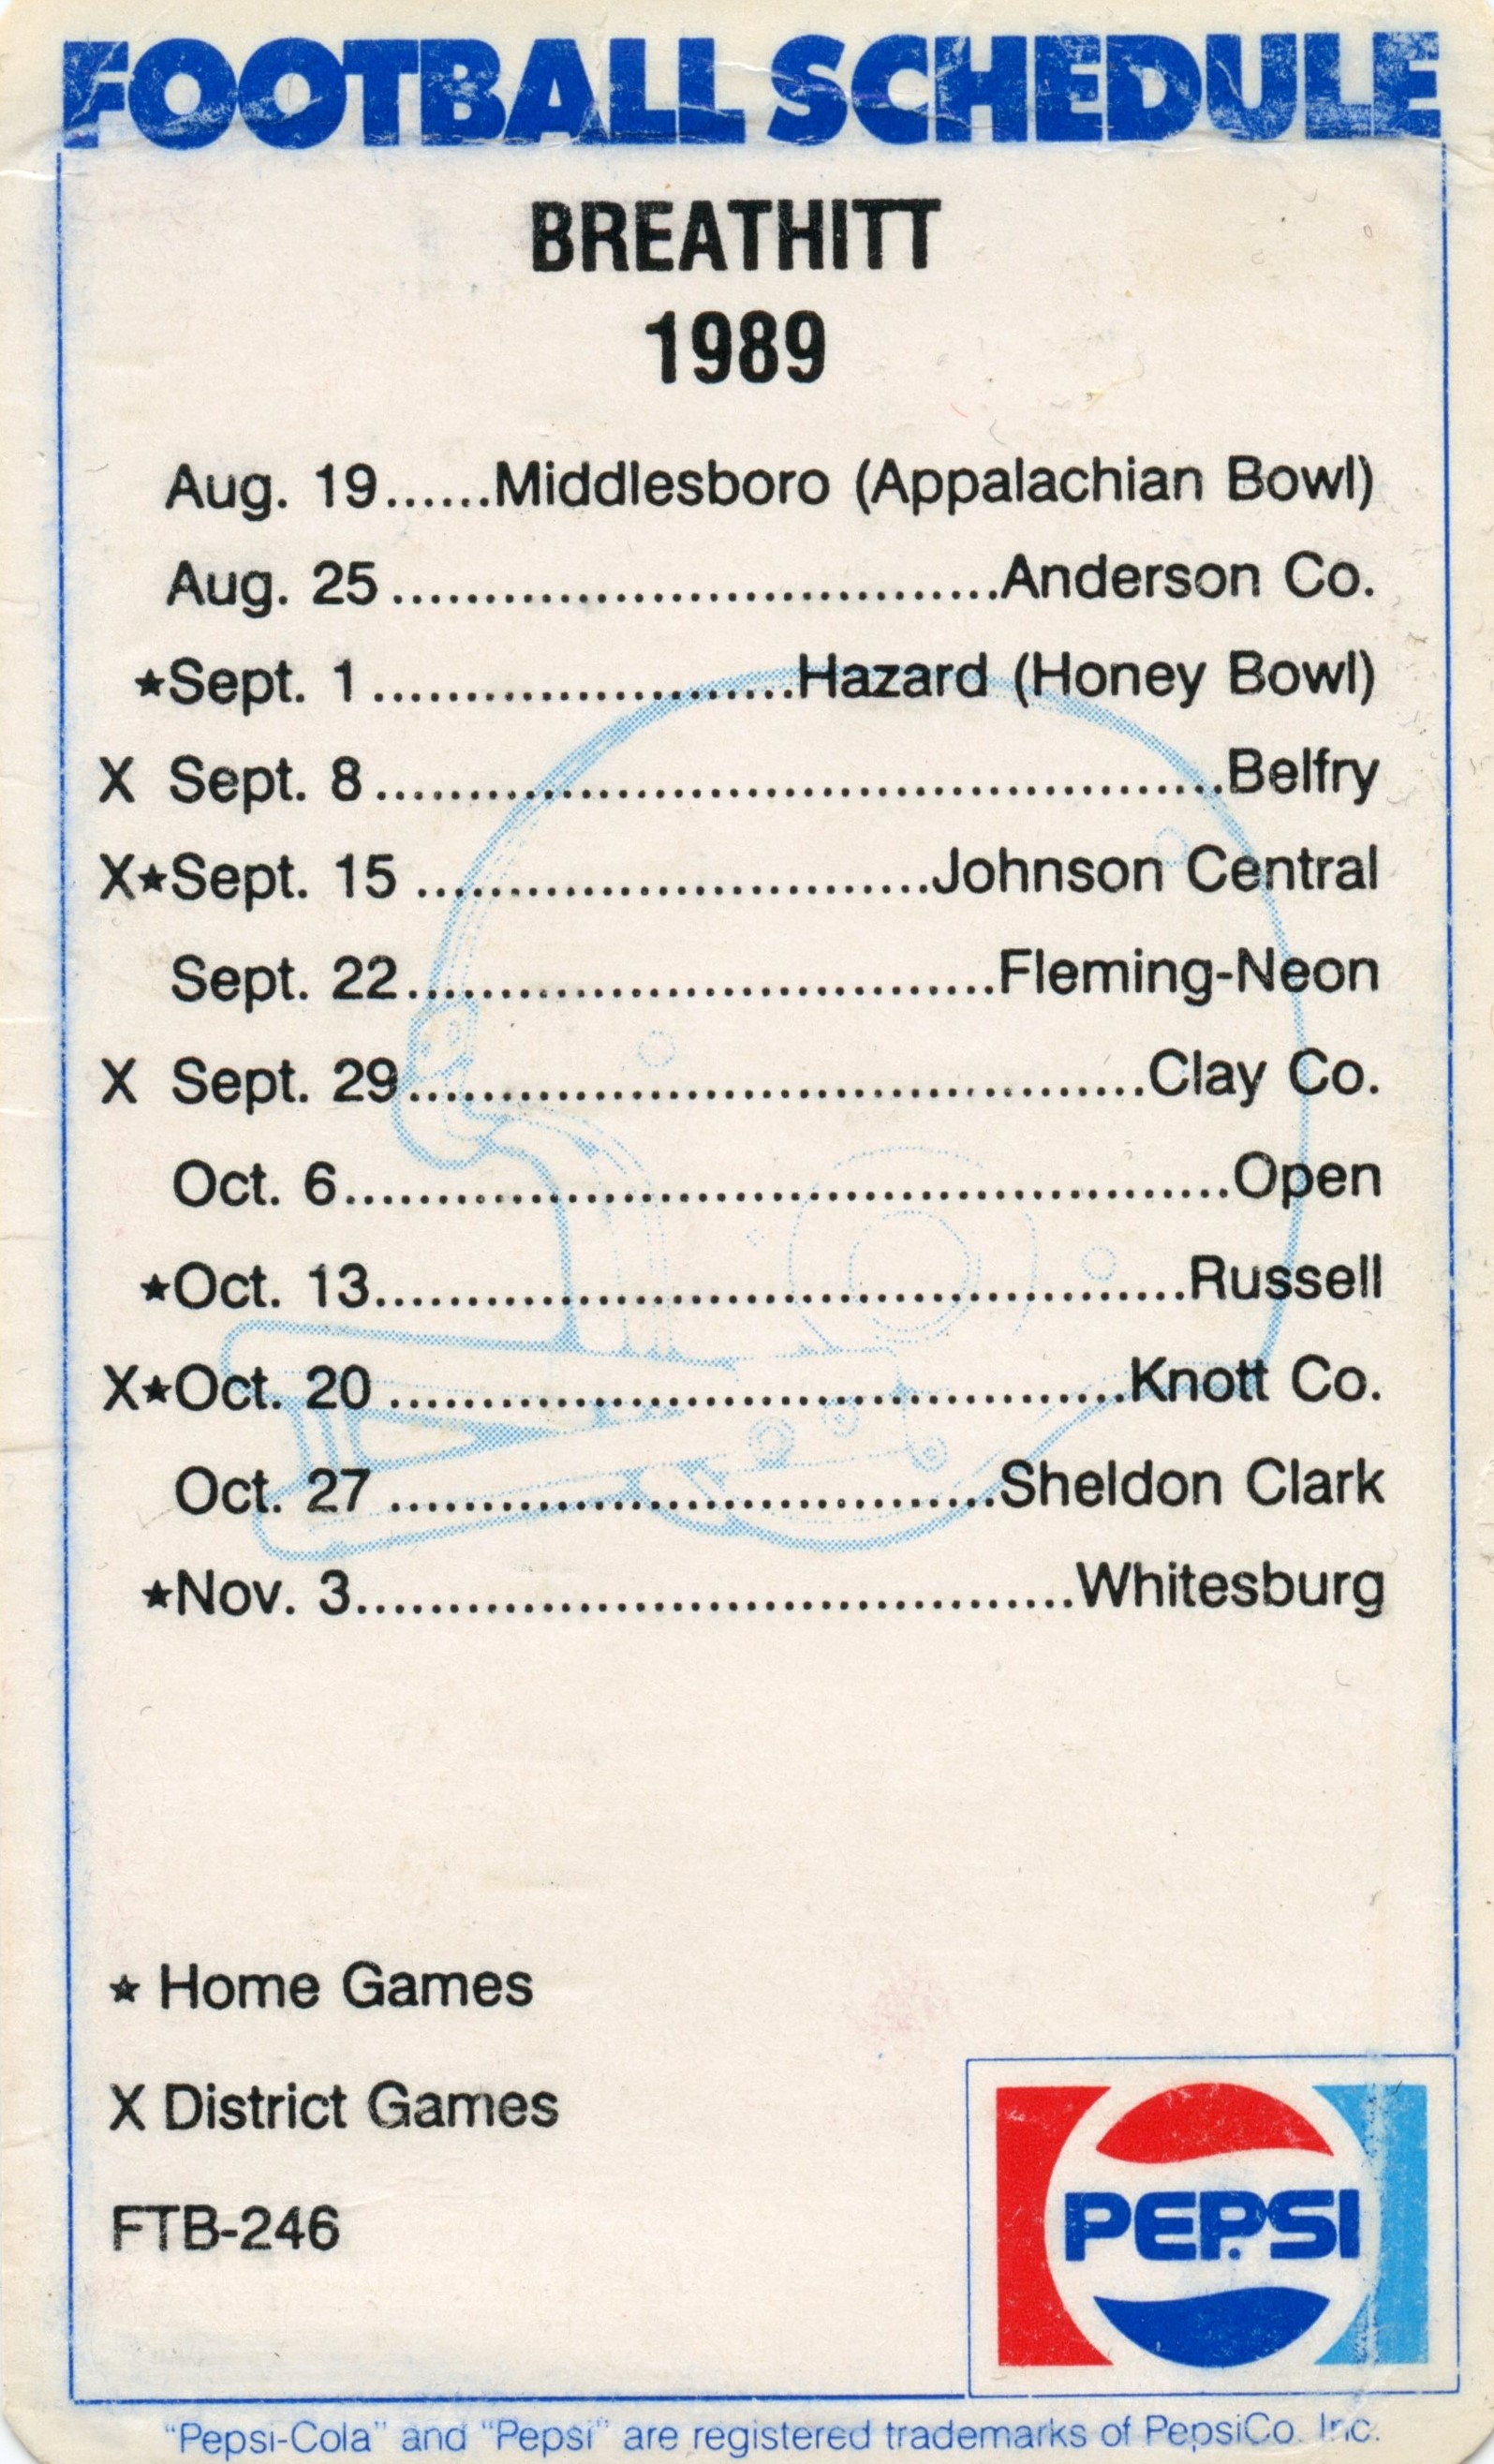 FOOTBALL SCHEDULE
BREATHITT
1989
Aug. 19......Middlesboro (Appalachian Bowl)
Aug. 25.................................Anderson Co.
★Sept. 1.......................Hazard (Honey Bowl)
X Sept. 8..............................................Belfry
X★Sept. 15............................Johnson Central
Sept. 22................................Fleming-Neon
X Sept. 29........................................Clay Co.
Oct. 6................................................Open
★Oct. 13............................................Russell
X★Oct. 20........................................Knott Co.
Oct. 27.................................Sheldon Clark
★Nov. 3.......................................Whitesburg
★ Home Games
X District Games
FTB-246
PEPSI
"Pepsi-Cola" and "Pepsi" are registered trademarks of PepsiCo. Inc.